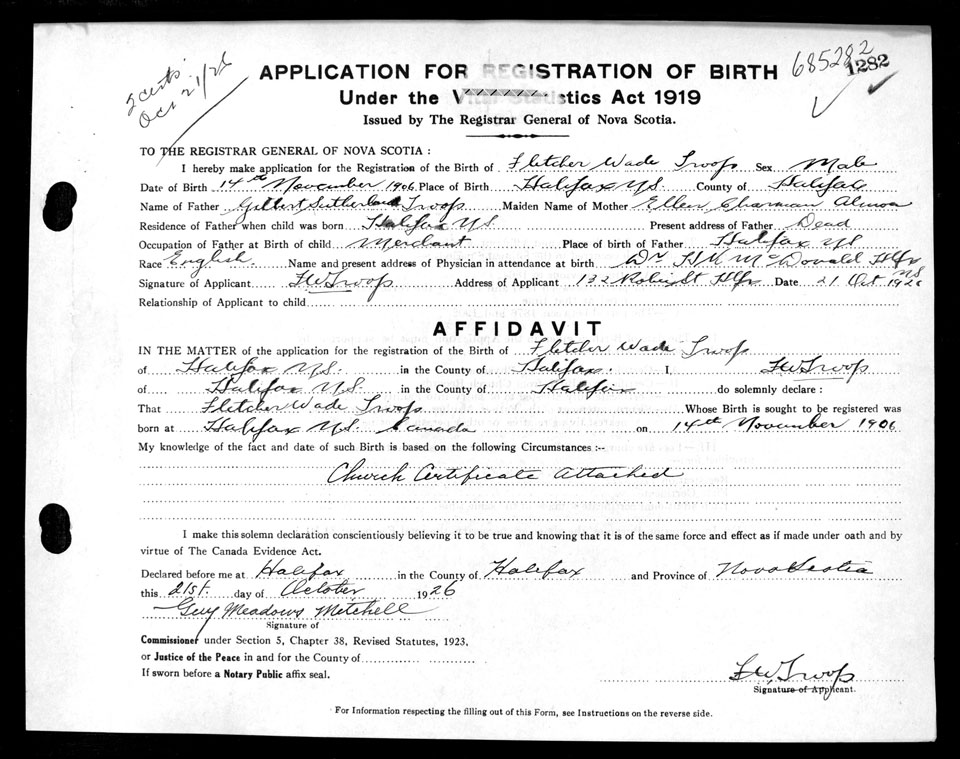 2 certs
Oct 21/26
685282
1282
APPLICATION FOR REGISTRATION OF BIRTH
Under the Vital Statistics Act 1919
Issued by The Registrar General of Nova Scotia.
TO THE REGISTRAR GENERAL OF NOVA SCOTIA :
I hereby make application for the Registration of the Birth of Fletcher Wade Troop Sex Male
Date of Birth 14th November 1906. Place of Birth Halifax N.S. County of Halifax
Name of Father Gilbert Sutherland Troop Maiden Name of Mother Ellen Charman Almon
Residence of Father when child was born Halifax N.S. Present address of Father Dead
Occupation of Father at Birth of child Merchant Place of birth of Father Halifax N.S
Race English. Name and present address of Physician in attendance at birth Dr H K McDonald Hfx NS
Signature of Applicant FWTroop Address of Applicant 132 Robie St Hfx Date 21 Oct 1926
Relationship of Applicant to child
AFFIDAVIT
IN THE MATTER of the application for the registration of the Birth of Fletcher Wade Troop
of Halifax N.S. in the County of Halifax. I FWTroop
of Halifax N.S. in the County of Halifax do solemnly declare :
That Fletcher Wade Troop Whose Birth is sought to be registered was
born at Halifax N.S. Canada on 14th November 1906
My knowledge of the fact and date of such Birth is based on the following Circumstances :--
Church Certificate Attached
I make this solemn declaration conscientiously believing it to be true and knowing that it is of the same force and effect as if made under oath and by
virtue of The Canada Evidence Act.
Declared before me at Halifax in the County of Halifax and Province of Nova Scotia
this 21st. day of October 1926
Guy Meadows Mitchell
Signature of
Commissioner under Section 5, Chapter 38, Revised Statutes, 1923,
or Justice of the Peace in and for the County of
If sworn before a Notary Public affix seal.
FWTroop
Signature of Applicant.
For Information respecting the filling out of this Form, see Instructions on the reverse side.